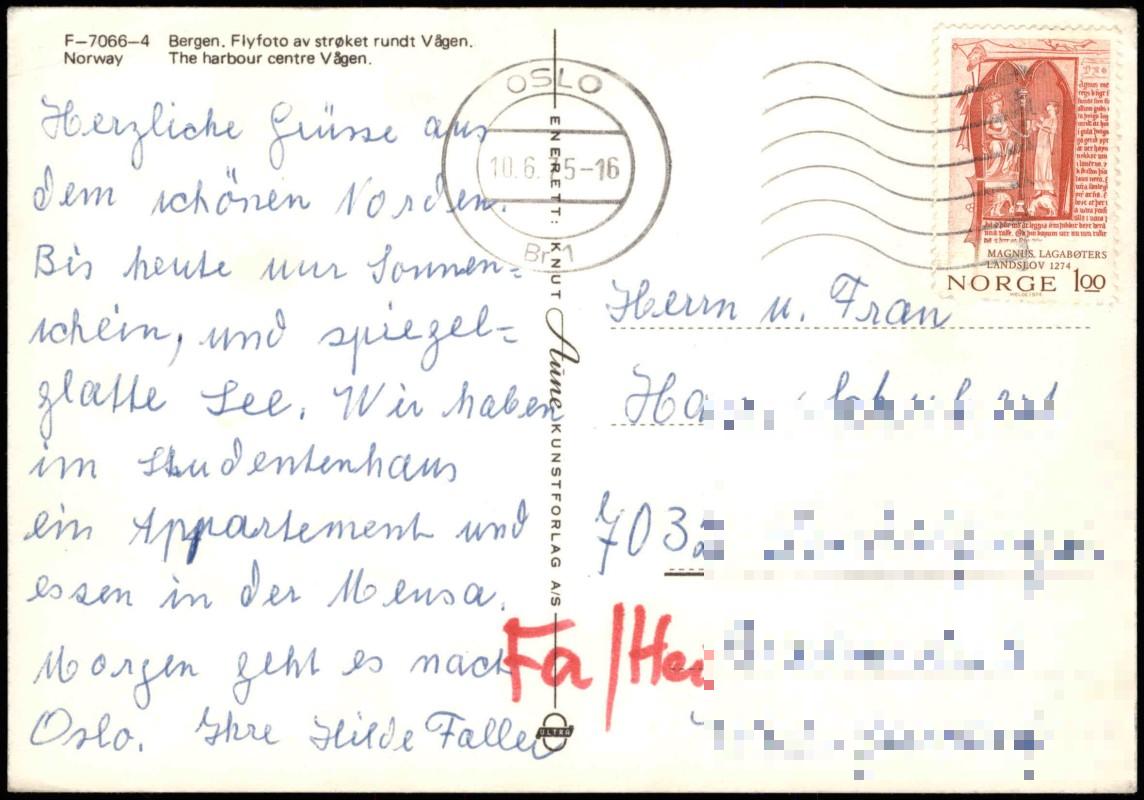 F-7066-4 Bergen. Flyfoto av strøket rundt Vågen.
Norway The harbour centre Vågen.
Herzliche Grüsse aus
dem schönen Norden.
Bis heute nur Sonnen=
schein, und spiegel=
glatte See. Wir haben
im Studentenhaus
ein Appartement und
essen in der Mensa.
Morgen geht es nach
Oslo. Ihre Hilde Faller
ENERETT: KNUT Aune KUNSTFORLAG A/S
ULTRA
OSLO
10.6.75-16
Br 1
MAGNUS LAGABØTERS
LANDSLOV 1274
NORGE 100
Herrn u. Frau
703
Fa/He